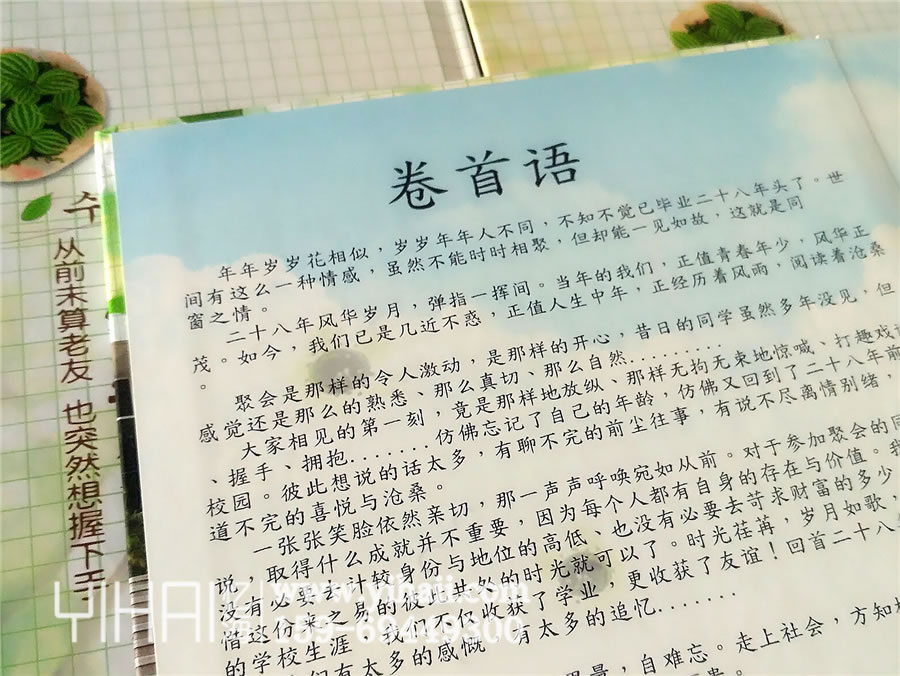 卷首语
年年岁岁花相似，岁岁年年人不同，不知不觉已毕业二十八年头了。世
间有这么一种情感，虽然不能时时相聚，但却能一见如故，这就是同
窗之情。
二十八年风华岁月，弹指一挥间。当年的我们，正值青春年少，风华正
茂。如今，我们已是几近不惑，正值人生中年，正经历着风雨，阅读着沧桑
。
聚会是那样的令人激动，是那样的开心，昔日的同学虽然多年没见，但
感觉还是那么的熟悉、那么真切、那么自然.........
大家相见的第一刻，竟是那样地放纵、那样无拘无束地惊喊、打趣戏
、握手、拥抱.......仿佛忘记了自己的年龄，仿佛又回到了二十八年前
校园。彼此想说的话太多，有聊不完的前尘往事，有说不尽离情别绪，
道不完的喜悦与沧桑。
一张张笑脸依然亲切，那一声声呼唤宛如从前。对于参加聚会的同
说，取得什么成就并不重要，因为每个人都有自身的存在与价值。我
没有必要去计较身份与地位的高低，也没有必要去苛求财富的多少
惜这份来之易的彼此共处的时光就可以了。时光荏苒，岁月如歌，
的学校生涯，我们不仅收获了学业，更收获了友谊！回首二十八
们有太多的感慨，有太多的追忆........
，自难忘。走上社会，方知
从前未算老友 也突然想握下手
YIHAI
www.yihaii.com
159-69449300